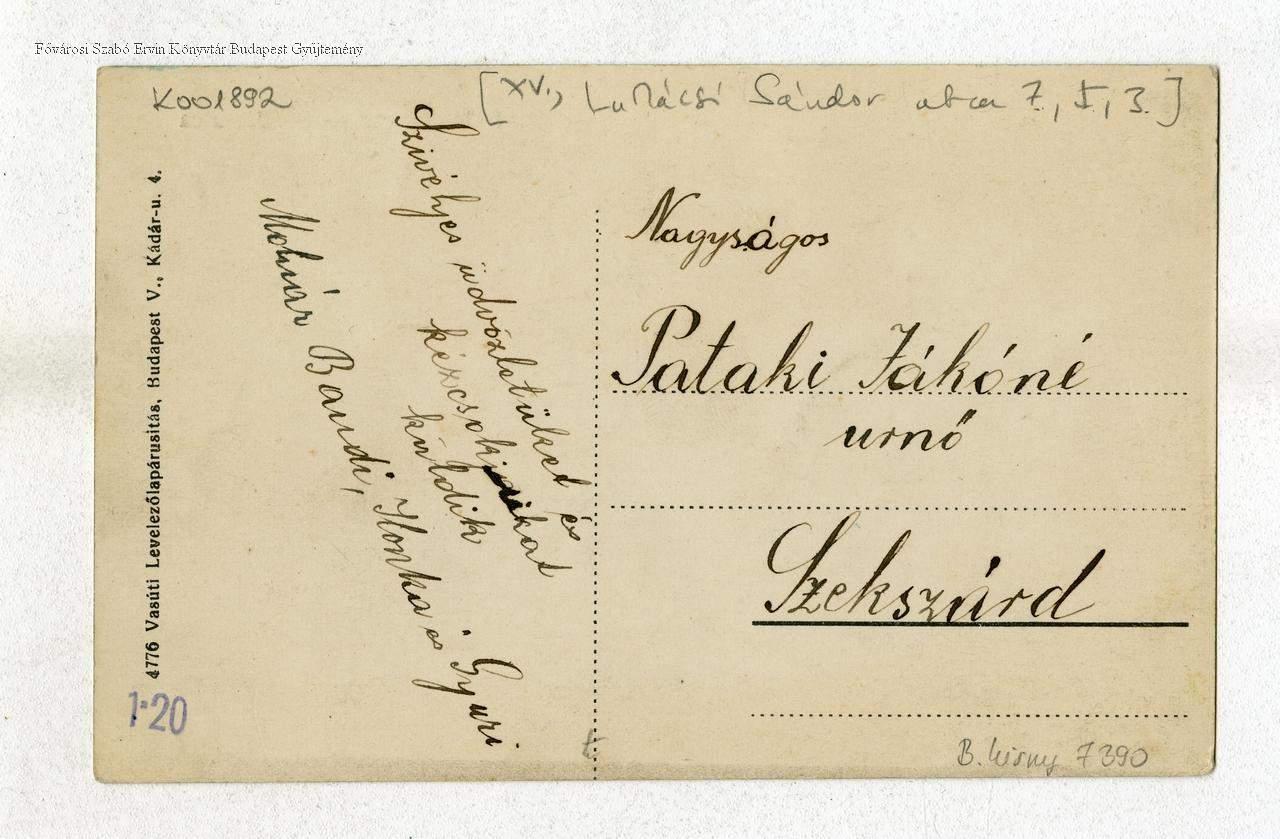 Fővárosi Szabó Ervin Könyvtár Budapest Gyűjtemény
K001892
[XV., Sándor utca 7., 5, 3.]
4776 Vasúti Levelezőlapárusitás, Budapest V., Kádár-u. 4.
1·20
Szivélyes üdvözletüket és
kézcsókjaikat
küldik
Molnár Bandi, Ilonka és Gyuri
Nagyságos
Pataki Jákóné
urnő
Szekszárd
B. 7390